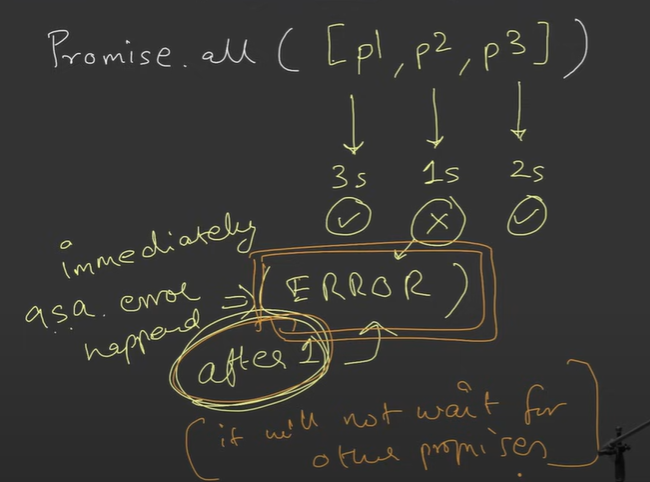 Promise.all ( [p1, p2, p3] )
3s 1s 2s
immediately
a.s.a. error
happend
⇒ ( ERROR )
after 1
(it will not wait for
other promises